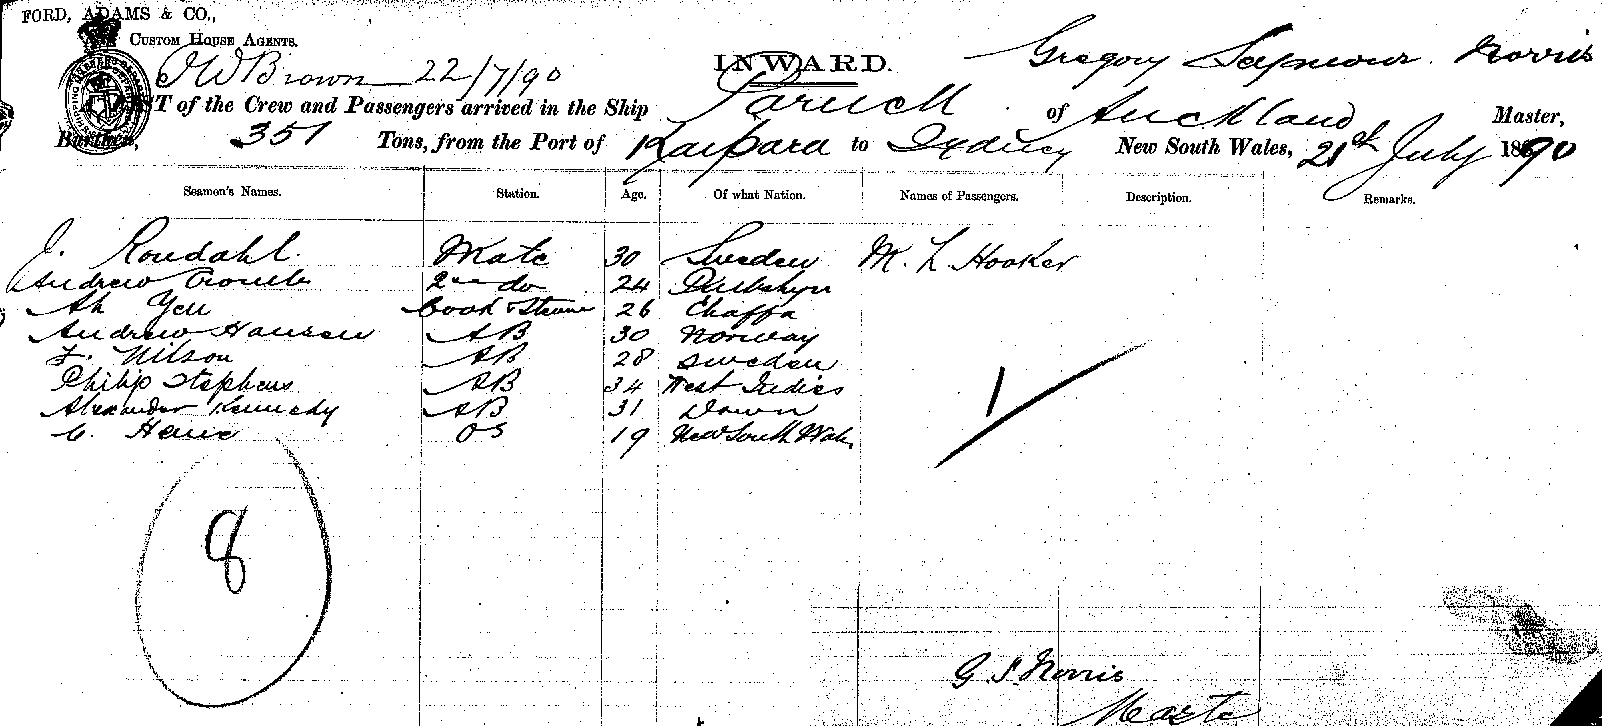 FORD, ADAMS & CO.,
CUSTOM HOUSE AGENTS.
Brown 22/7/90
INWARD.
Gregory Seymour Norris
LIST of the Crew and Passengers arrived in the Ship of Auckland Master,
Burthen, 351 Tons, from the Port of Kaipara to Sydney New South Wales, 21st July 1890
Seamen's Names. Station. Age. Of what Nation. Names of Passengers. Description. Remarks.
J. Roudahl. Mate 30 Sweden M. L. Hooker
Andrew 2nd do 24
Ah Yen Cook & Stew 26
Andrew Hansen AB 30 Norway
F. Nilson AB 28 Sweden
Philip Stephens AB 34 West Indies
Alexander Kennedy AB 31 Down
C. OS 19 New South Wales
1
8
G S. Norris
Master